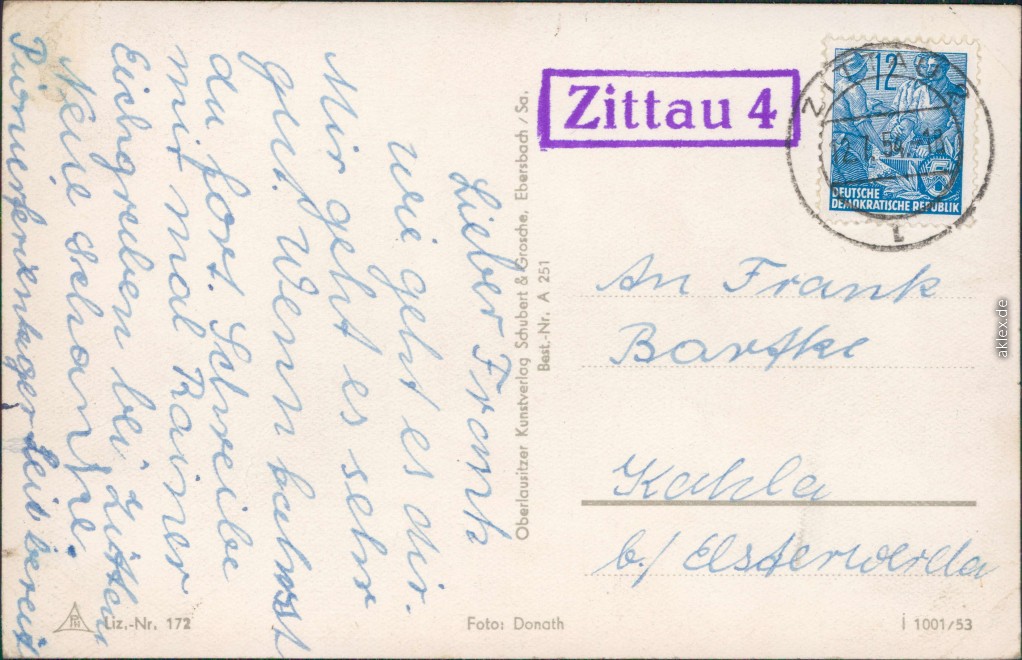 Lieber Frank
wie geht es dir.
Mir geht es sehr
gut. Wenn
du fort. Schreibe
mit mal Rainer
Eichgraben bei Zittau
Neue Schänke.
Pionierferienlager Seit bereit
Oberlausitzer Kunstverlag Schubert & Grosche, Ebersbach / Sa.
Best.-Nr. A 251
Zittau 4
ZITTAU
2.7.54.-18
12
DEUTSCHE
DEMOKRATISCHE REPUBLIK
An Frank
Bartke
Kahla
b./ Elsterwerda
Liz.-Nr. 172
Foto: Donath
i 1001/53
aklex.de